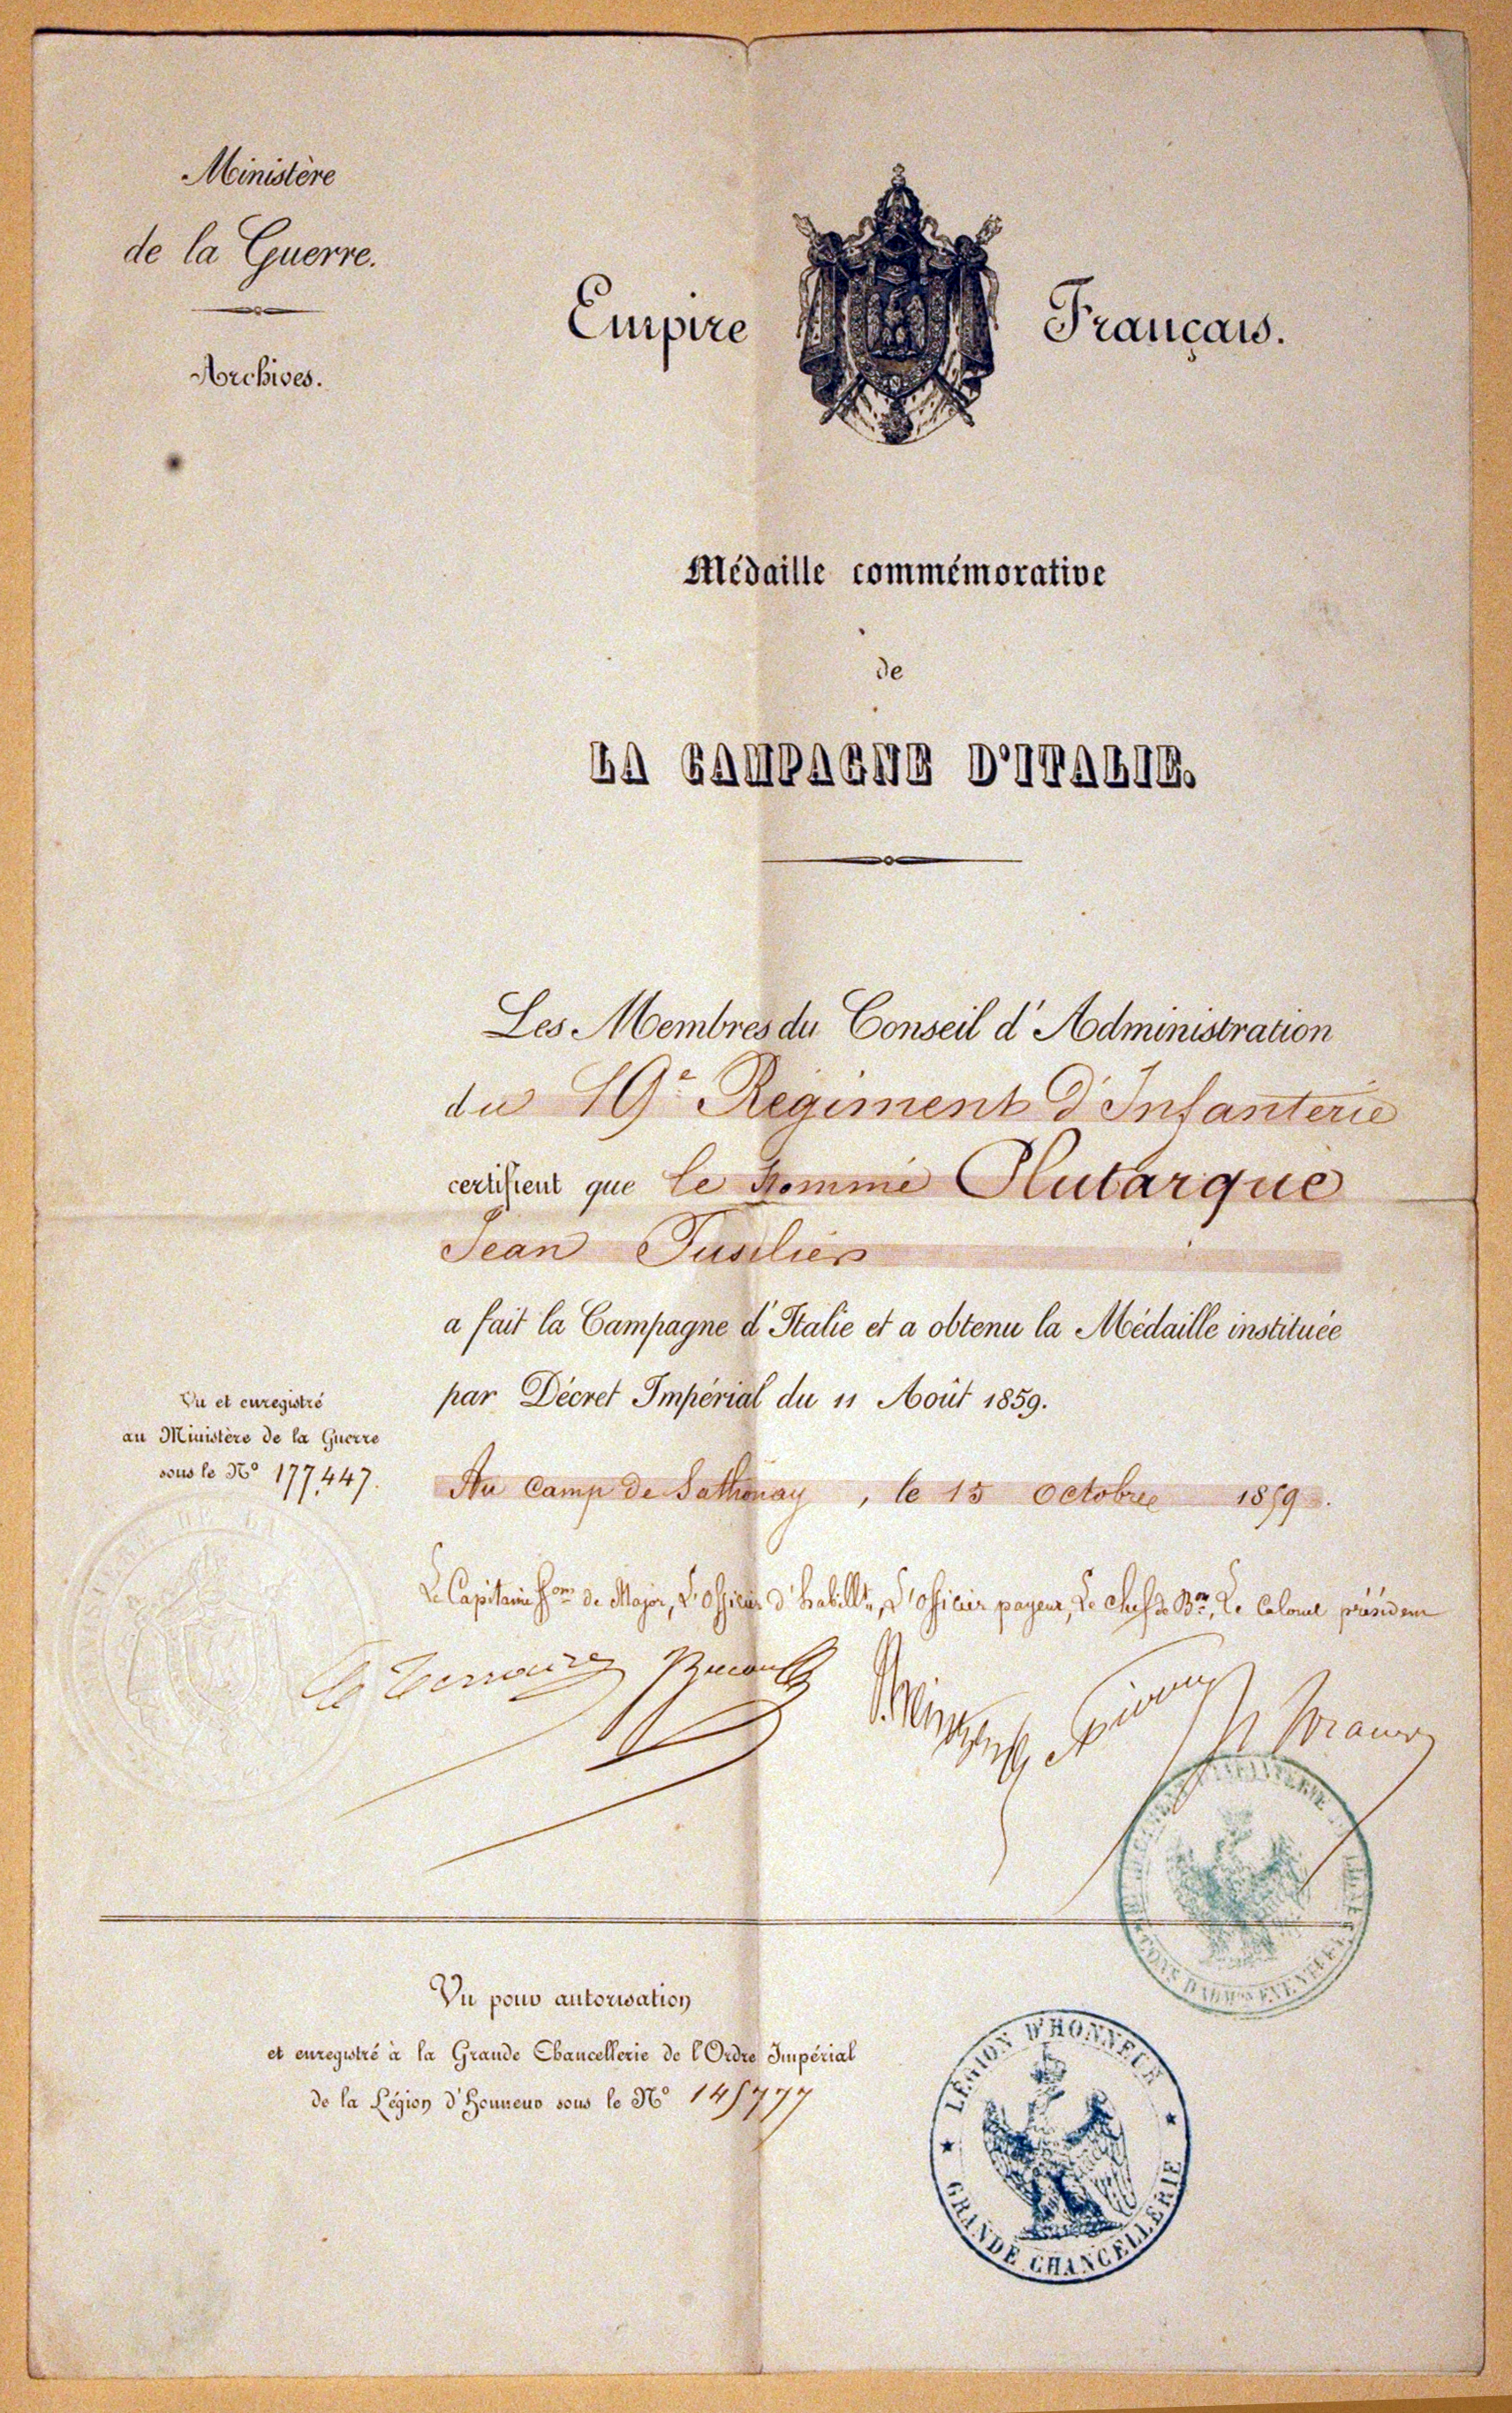 Ministère
de la Guerre.
Archives.
Empire Français.
Médaille commémorative
de
LA CAMPAGNE D'ITALIE.
Les Membres du Conseil d'Administration
du 19e Régiment d'Infanterie
certifient que le nommé Plutarque
Jean Fusilier
a fait la Campagne d'Italie et a obtenu la Médaille instituée
par Décret Impérial du 11 Août 1859.
Vu et enregistré
au Ministère de la Guerre
sous le No 177,447.
Au Camp de Sathonay, le 15 octobre 1859.
Le Capitaine fons de Major, L'officier d'habillt, L'officier payeur, Le chef de Bon, Le Colonel président
Vu pour autorisation
et enregistré à la Grande Chancellerie de l'Ordre Impérial
de la Légion d'Honneur sous le No 145777
LÉGION D'HONNEUR
GRANDE CHANCELLERIE